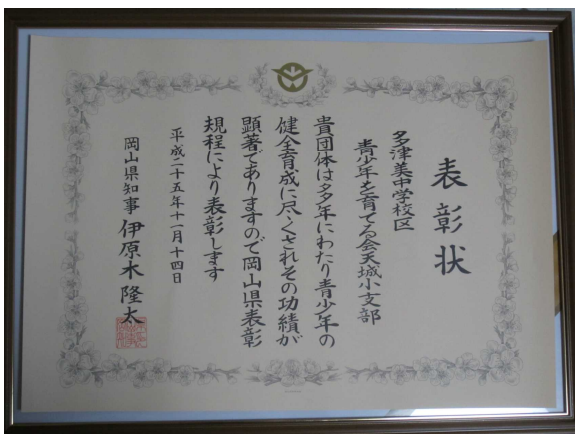 表彰状
多津美中学校区
青少年を育てる会天城小支部
貴団体は多年にわたり青少年の
健全育成に尽くされその功績が
顕著でありますので岡山県表彰
規程により表彰します
平成二十五年十一月十四日
岡山県知事 伊原木隆太